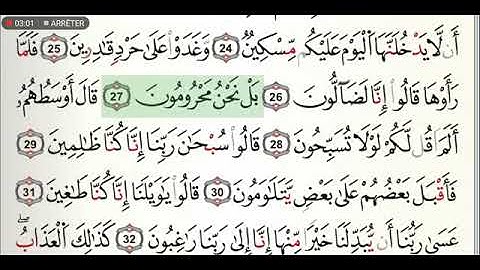 03:01 ■ ARRÊTER
أَن لَّا يَدْخُلَنَّهَا ٱلْيَوْمَ عَلَيْكُم مِّسْكِينٌ 24 وَغَدَوْا۟ عَلَىٰ حَرْدٍ قَٰدِرِينَ 25 فَلَمَّا
رَأَوْهَا قَالُوٓا۟ إِنَّا لَضَآلُّونَ 26 بَلْ نَحْنُ مَحْرُومُونَ 27 قَالَ أَوْسَطُهُمْ
أَلَمْ أَقُل لَّكُمْ لَوْلَا تُسَبِّحُونَ 28 قَالُوا۟ سُبْحَٰنَ رَبِّنَآ إِنَّا كُنَّا ظَٰلِمِينَ 29
فَأَقْبَلَ بَعْضُهُمْ عَلَىٰ بَعْضٍ يَتَلَٰوَمُونَ 30 قَالُوا۟ يَٰوَيْلَنَآ إِنَّا كُنَّا طَٰغِينَ 31
عَسَىٰ رَبُّنَآ أَن يُبْدِلَنَا خَيْرًا مِّنْهَآ إِنَّآ إِلَىٰ رَبِّنَا رَٰغِبُونَ 32 كَذَٰلِكَ ٱلْعَذَابُ ۖ